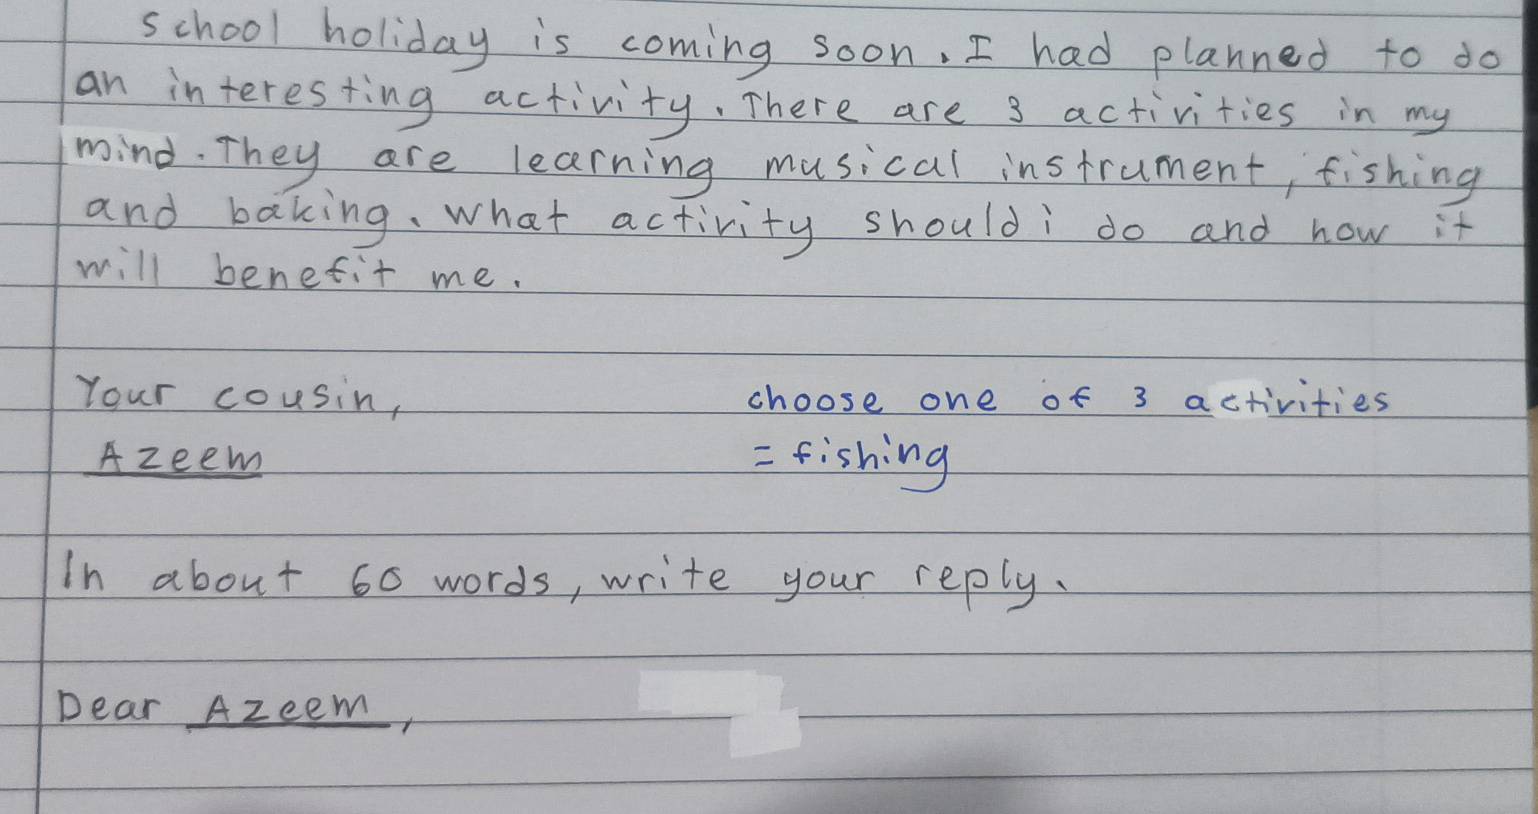 school holiday is coming soon. I had planned to do
an interesting activity. There are 3 activities in my
mind. They are learning musical instrument, fishing
and baking. What activity should i do and how it
will benefit me.
Your cousin,
Azeem
choose one of 3 activities
= fishing
In about 60 words, write your reply.
Dear Azeem,